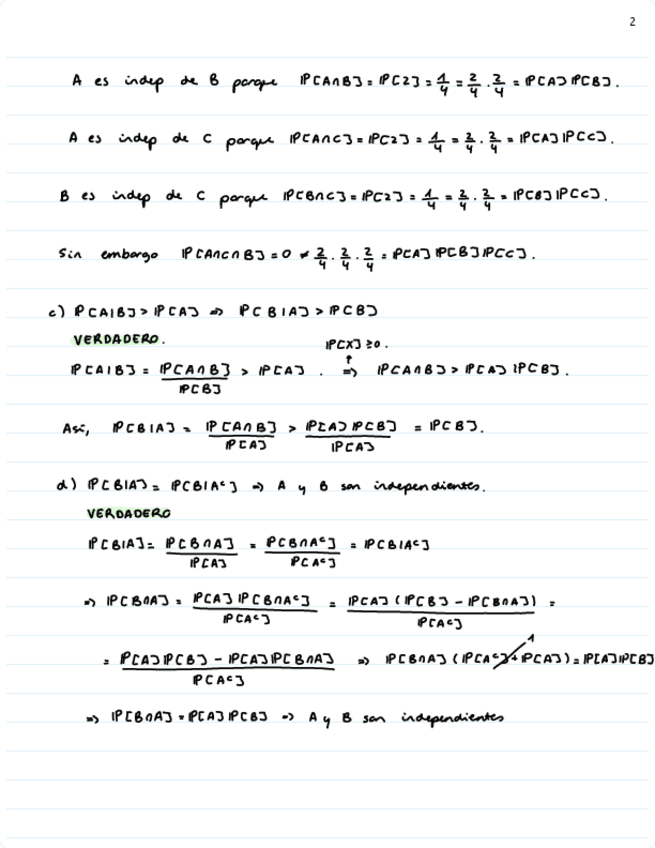 2
A es indep de B porque IP[A∩B] = IP[2] = 1/4 = 2/4 · 2/4 = IP[A] IP[B].
A es indep de C porque IP[A∩C] = IP[2] = 1/4 = 2/4 · 2/4 = IP[A] IP[C].
B es indep de C porque IP[B∩C] = IP[2] = 1/4 = 2/4 · 2/4 = IP[B] IP[C].
Sin embargo IP[A∩C∩B] = 0 ≠ 2/4 · 2/4 · 2/4 = IP[A] IP[B] IP[C].
c) IP[A|B] > IP[A] ⇒ IP[B|A] > IP[B]
VERDADERO.
IP[X] ≥ 0.
↑
IP[A|B] = IP[A∩B] / IP[B] > IP[A] . ⇒ IP[A∩B] > IP[A] IP[B].
Así, IP[B|A] = IP[A∩B] / IP[A] > IP[A] IP[B] / IP[A] = IP[B].
d) IP[B|A] = IP[B|Aᶜ] ⇒ A y B son independientes.
VERDADERO
IP[B|A] = IP[B∩A] / IP[A] = IP[B∩Aᶜ] / IP[Aᶜ] = IP[B|Aᶜ]
⇒ IP[B∩A] = IP[A] IP[B∩Aᶜ] / IP[Aᶜ] = IP[A] (IP[B] - IP[B∩A]) / IP[Aᶜ] =
= IP[A] IP[B] - IP[A] IP[B∩A] / IP[Aᶜ] ⇒ IP[B∩A] (IP[Aᶜ] + IP[A]) = IP[A] IP[B]
1
⇒ IP[B∩A] = IP[A] IP[B] ⇒ A y B son independientes